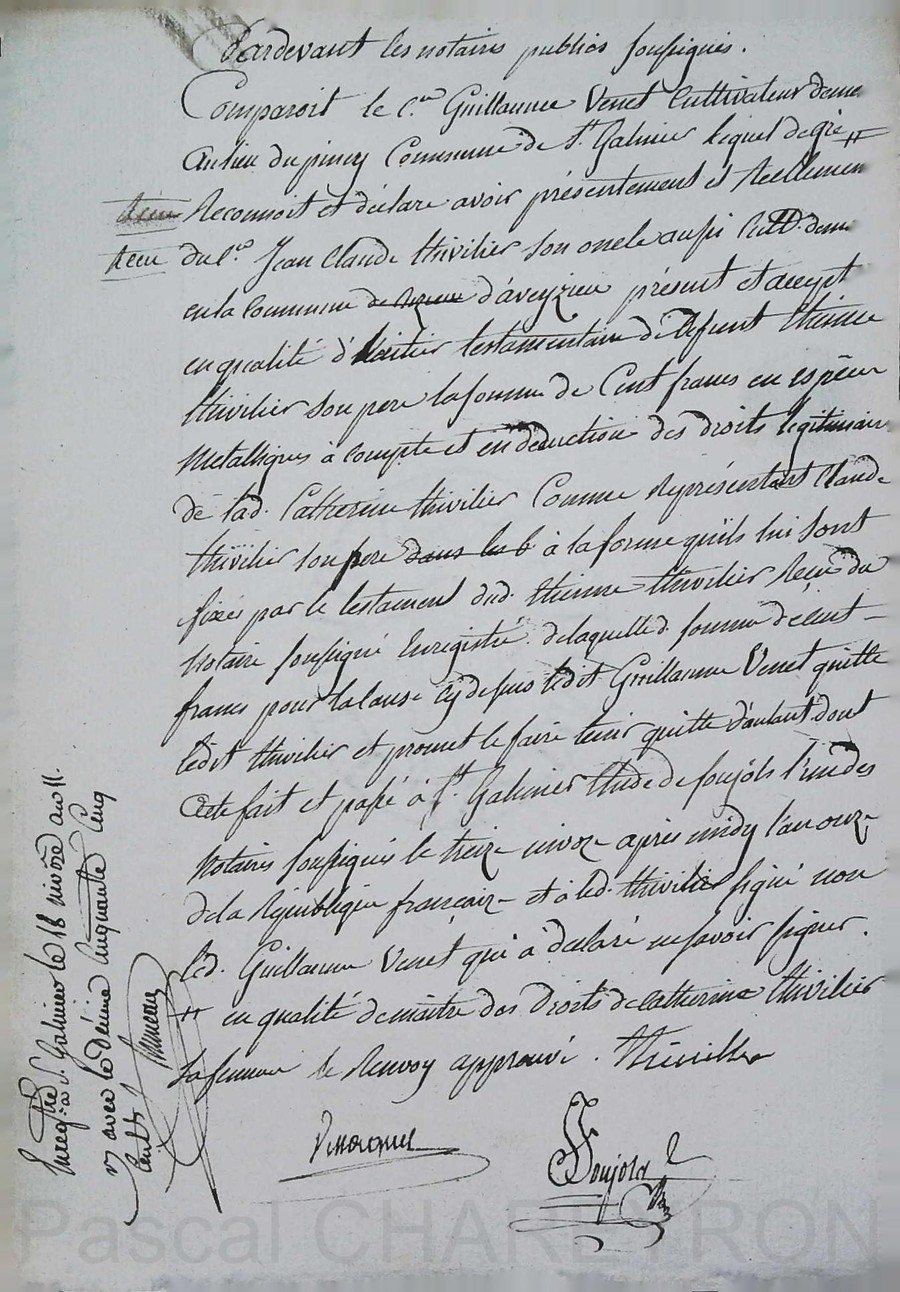 Pardevant les notaires publics soussignés.
Comparoit le C.en Guillaume Venet Cultivateur deme
Au lieu du pincy Commune de St. Galmier lequel de gré #
Reconnoit et déclare avoir présentement et Réellement
Reçu du C.en Jean Claude thivilier son oncle aussi Cult. dem
en la Commune d'aveyzieu présent et accept
en qualité d'héritier testamentaire de défunt Etienne
thivilier son pere la somme de Cent francs en espèces
Metalliques à compte et en déduction des droits legitimaires
de lad. Catherine thivilier Comme Représentant Claude
thivilier son pere dans les à la forme qu'ils lui sont
fixés par le testament dud. Etienne thivilier Reçu du
Notaire soussigné Enregistré. de laquelle d. somme de cent
francs pour la cause cy depus ledit Guillaume Venet quitte
ledit thivilier et promet le faire tenir quitte d'autant dont
acte fait et passé à St. Galmier Etude de soujols l'un des
Notaires soussignés le treize nivoze après midy l'an onze
de la République française et à led. thivilier signé non
led. Guillaume Venet qui a déclaré ne savoir signer.
# en qualité de maitre des droits de catherine thivilier
sa femme le Renvoy approuvé. thivillier
Soujols
Enreg.tré à S. Galmier le 18 nivôse an 11.
avec le dixme Cinquante Cinq
cent.
Pascal CHAREYRON